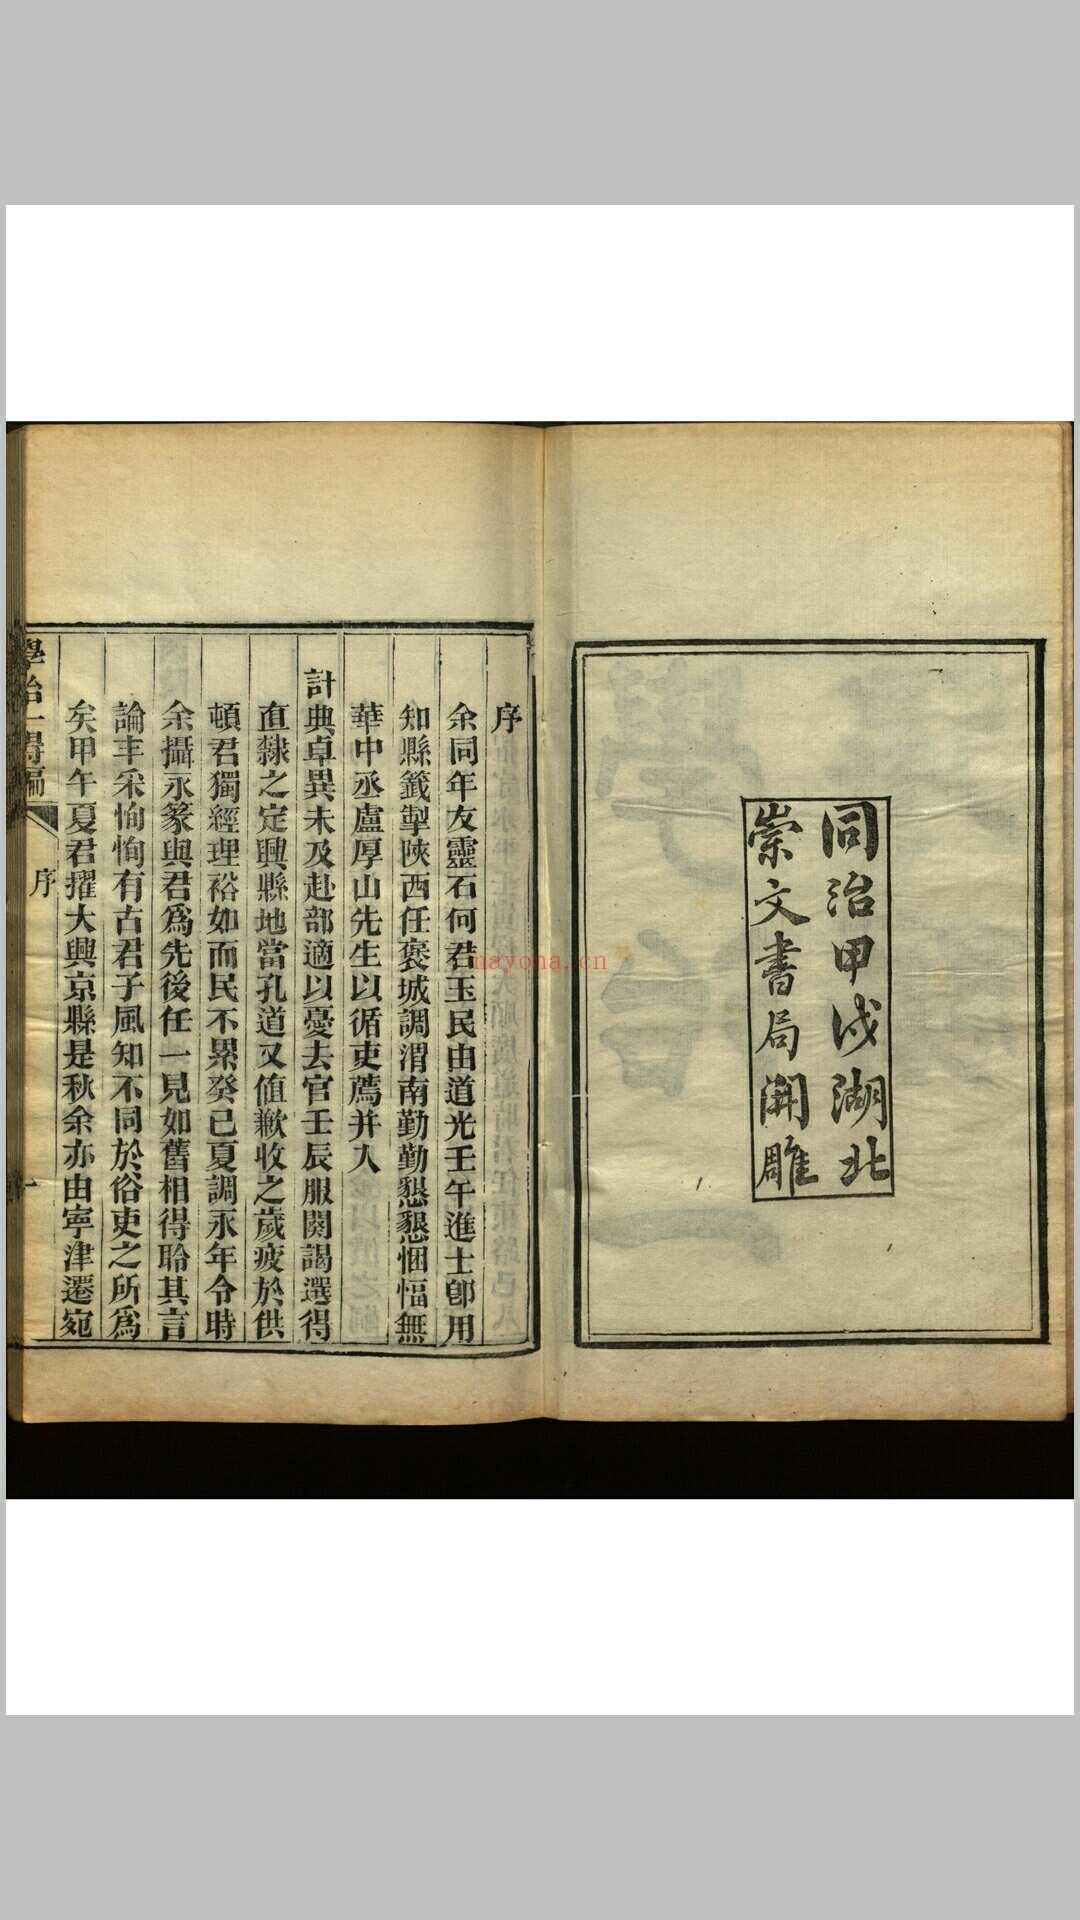 同治甲戌湖北
崇文書局開雕
序
余同年友靈石何君玉民由道光壬午進士卽用
知縣籤掣陝西任褒城調渭南勤勤懇懇悃愊無
華中丞盧厚山先生以循吏薦并入
計典卓異未及赴部適以憂去官壬辰服闋謁選得
直隸之定興縣地當孔道又值歉收之歲疲於供
頓君獨經理裕如而民不累癸巳夏調永年令時
余攝永篆與君爲先後任一見如舊相得聆其言
論丰采恂恂有古君子風知不同於俗吏之所爲
矣甲午夏君擢大興京縣是秋余亦由寧津遷宛
學治一得編
序
一
nayona.cn